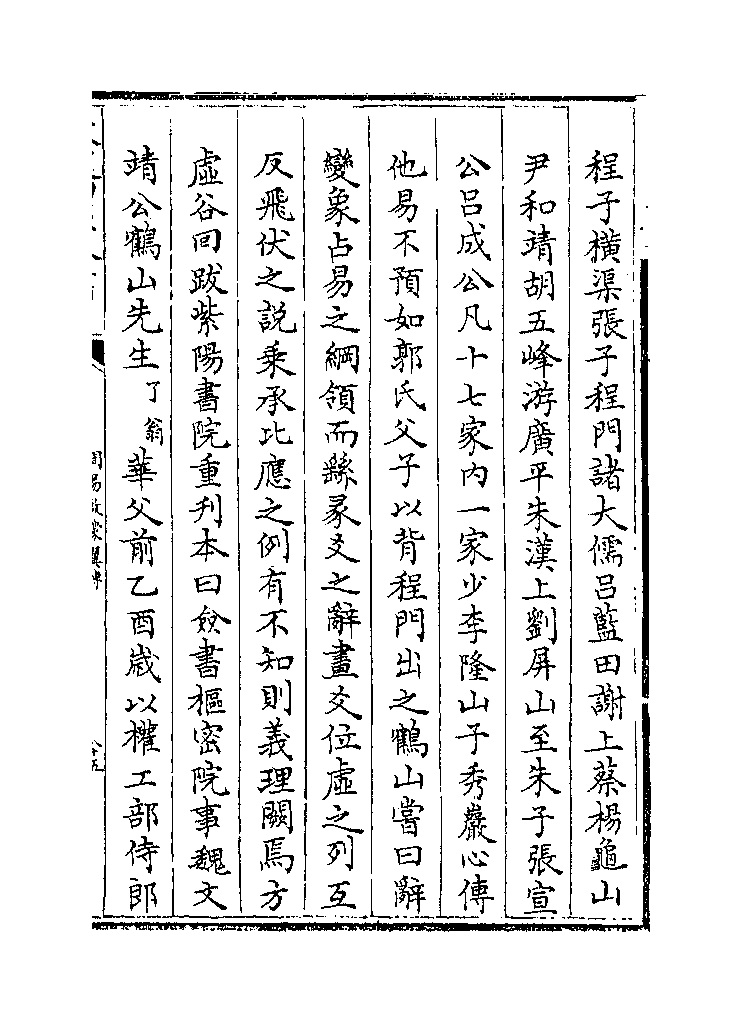 程子橫渠張子程門諸大儒呂藍田謝上蔡楊龜山
尹和靖胡五峰游廣平朱漢上劉屏山至朱子張宣
公呂成公凡十七家内一家少李隆山子秀巖心傳
他易不預如郭氏父子以背程門出之鶴山嘗曰辭
變象占易之綱領而繇彖爻之辭畫爻位虛之列互
反飛伏之說乗承比應之例有不知則義理闕焉方
虛谷回跋紫陽書院重刋本曰僉書樞密院事魏文
靖公鶴山先生了翁華父前乙酉嵗以權工部侍郎